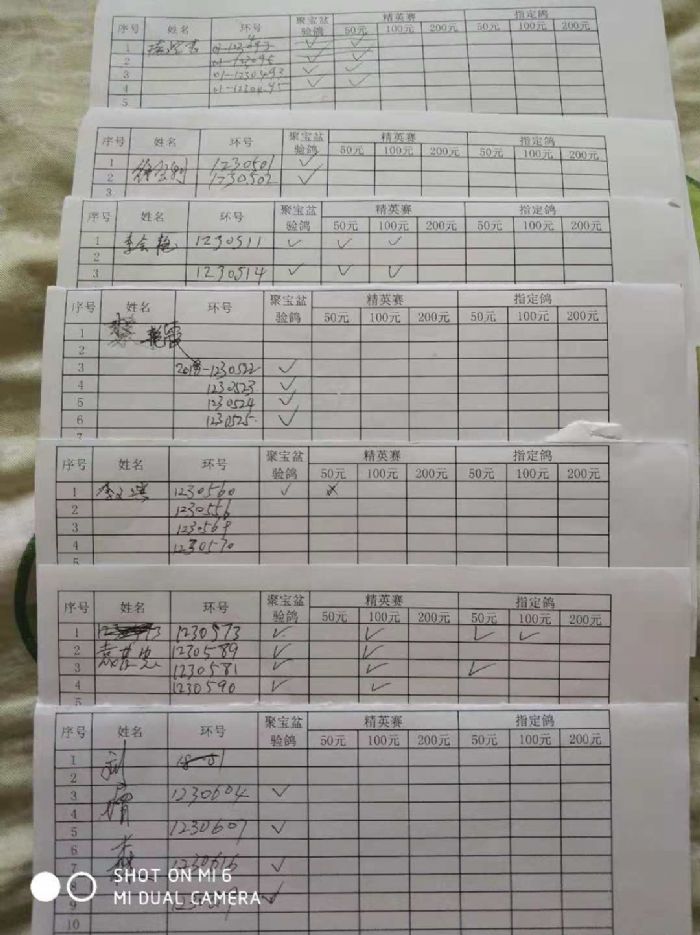 序号 姓名 环号 聚宝盆验鸽 精英赛 指定鸽
50元 100元 200元 50元 100元 200元
1 ✓ ✓
2 ✓ ✓
3 01-1230493 ✓ ✓
4 01-1230495 ✓ ✓
5
序号 姓名 环号 聚宝盆验鸽 精英赛 指定鸽
50元 100元 200元 50元 100元 200元
1 1230501 ✓
2 1230502 ✓
序号 姓名 环号 聚宝盆验鸽 精英赛 指定鸽
50元 100元 200元 50元 100元 200元
1 李会艳 1230511 ✓ ✓ ✓
3 1230514 ✓ ✓ ✓
序号 姓名 环号 聚宝盆验鸽 精英赛 指定鸽
50元 100元 200元 50元 100元 200元
1 艳霞
2
3 1230522 ✓
4 1230523 ✓
5 1230524 ✓
6 1230525 ✓
7
序号 姓名 环号 聚宝盆验鸽 精英赛 指定鸽
50元 100元 200元 50元 100元 200元
1 1230560 ✓
2 1230556
3 123056
4 1230570
5
序号 姓名 环号 聚宝盆验鸽 精英赛 指定鸽
50元 100元 200元 50元 100元 200元
1 1230573 ✓ ✓ ✓ ✓
2 1230589 ✓ ✓
3 1230581 ✓ ✓ ✓
4 1230590 ✓ ✓
5
序号 姓名 环号 聚宝盆验鸽 精英赛 指定鸽
50元 100元 200元 50元 100元 200元
1 刘
2
3 1230604 ✓
4
5 1230607 ✓
6
7 1230616 ✓
8
9 ✓
10
SHOT ON MI 6
MI DUAL CAMERA